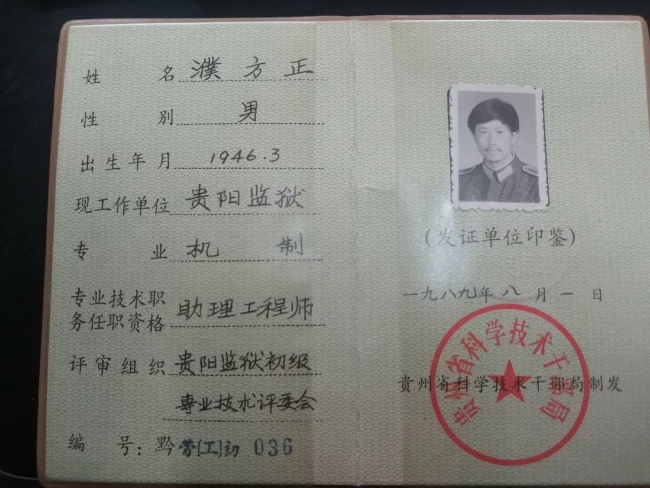 姓名 濮方正
性别 男
出生年月 1946.3
现工作单位 贵阳监狱
专业 机制
专业技术职
务任职资格 助理工程师
评审组织 贵阳监狱初级
专业技术评委会
编号:黔劳[工]初 036
(发证单位印鉴)
一九八九年八月一日
贵州省科学技术干部局制发
贵州省科学技术干部局